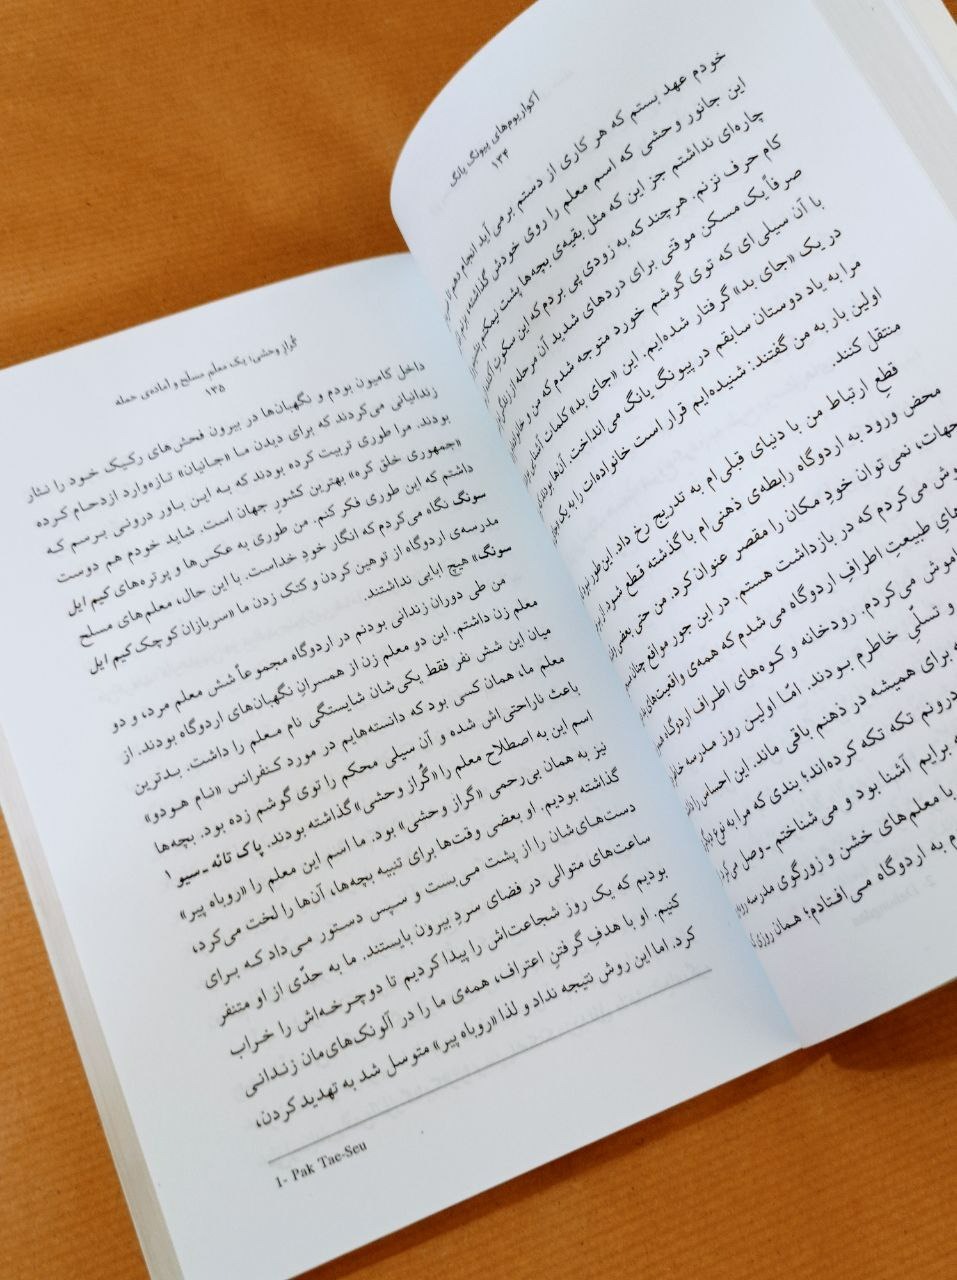 آکواریوم‌های پیونگ یانگ
۱۳۴
خودم عهد بستم که هر کاری از دستم برمی‌آید انجام دهم
این جانور وحشی که اسم معلم را روی خودش گذاشته،
چاره‌ای نداشتم جز این که مثل بقیه‌ی بچه‌ها پشت نیمکتم
کام حرف نزنم. هرچند که به زودی پی بردم که این سکوت
صرفاً یک مسکن موقتی برای دردهای شدید آن مرحله از زندگی
با آن سیلی‌ای که توی گوشم خورد متوجه شدم که من و
در یک «جای بد» گرفتار شده‌ایم. این «جای بد» کلمات
مرا به یاد دوستان سابقم در پیونگ یانگ می‌انداخت. آن‌ها بودند
اولین بار به من گفتند: شنیده‌ایم قرار است خانواده‌ات را به یک
منتقل کنند.
قطعِ ارتباط من با دنیای قبلی‌ام به تدریج رخ داد. این طور
محض ورود به اردوگاه رابطه‌ی ذهنی‌ام با گذشته قطع شود.
جهات، نمی‌توان خودِ مکان را مقصر عنوان کرد. من حتی بعضی
می‌کردم که در بازداشت هستم. در این جور مواقع چنان
طبیعتِ اطرافِ اردوگاه می‌شدم که همه‌ی واقعیت‌های
می‌کردم. رودخانه و کوه‌های اطراف اردوگاه
و تسلّیِ خاطرم بودند. امّا اولین روز مدرسه
برای همیشه در ذهنم باقی ماند. این احساس را
درونم تکه تکه کرده‌اند؛ بندی که مرا به نوعی
برایم آشنا بود و می‌شناختم ـ وصل می‌کرد
با معلم‌های خشن و زورگوی مدرسه
به اردوگاه می‌افتادم؛ همان روزی
گراز وحشی؛ یک معلم مسلح و آماده‌ی حمله
۱۳۵
داخل کامیون بودم و نگهبان‌ها در بیرون فحش‌های رکیک خود را نثار
زندانیانی می‌کردند که برای دیدن ما «جانیان» تازه‌وارد ازدحام کرده
بودند. مرا طوری تربیت کرده بودند که به این باور درونی برسم که
«جمهوری خلق کره» بهترین کشورِ جهان است. شاید خودم هم دوست
داشتم که این طوری فکر کنم. من طوری به عکس‌ها و پرتره‌های کیم ایل
سونگ نگاه می‌کردم که انگار خودِ خداست. با این حال، معلم‌های مسلح
مدرسه‌ی اردوگاه از توهین کردن و کتک زدن ما «سربازان کوچک کیم ایل
سونگ» هیچ ابایی نداشتند.
من طی دوران زندانی بودنم در اردوگاه مجموعاً شش معلم مرد، و دو
معلم زن داشتم. این دو معلم زن از همسرانِ نگهبان‌های اردوگاه بودند. از
میان این شش نفر فقط یکی‌شان شایستگی نام معلم را داشت. بدترین
معلم ما، همان کسی بود که دانسته‌هایم در مورد کنفرانس «نام هودو»
باعث ناراحتی‌اش شده و آن سیلی محکم را توی گوشم زده بود. بچه‌ها
اسم این به اصطلاح معلم را «گُراز وحشی» گذاشته بودند. پاک تائه ـ سیو ۱
نیز به همان بی‌رحمی «گراز وحشی» بود. ما اسم این معلم را «روباه پیر»
گذاشته بودیم. او بعضی وقت‌ها برای تنبیه بچه‌ها، آن‌ها را لخت می‌کرد،
دست‌های‌شان را از پشت می‌بست و سپس دستور می‌داد که برای
ساعت‌های متوالی در فضای سردِ بیرون بایستند. ما به حدّی از او متنفر
بودیم که یک روز شجاعت‌اش را پیدا کردیم تا دوچرخه‌اش را خراب
کنیم. او با هدفِ گرفتنِ اعتراف، همه‌ی ما را در آلونک‌های‌مان زندانی
کرد. اما این روش نتیجه نداد و لذا «روباه پیر» متوسل شد به تهدید کردن،
1- Pak Tae-Seu